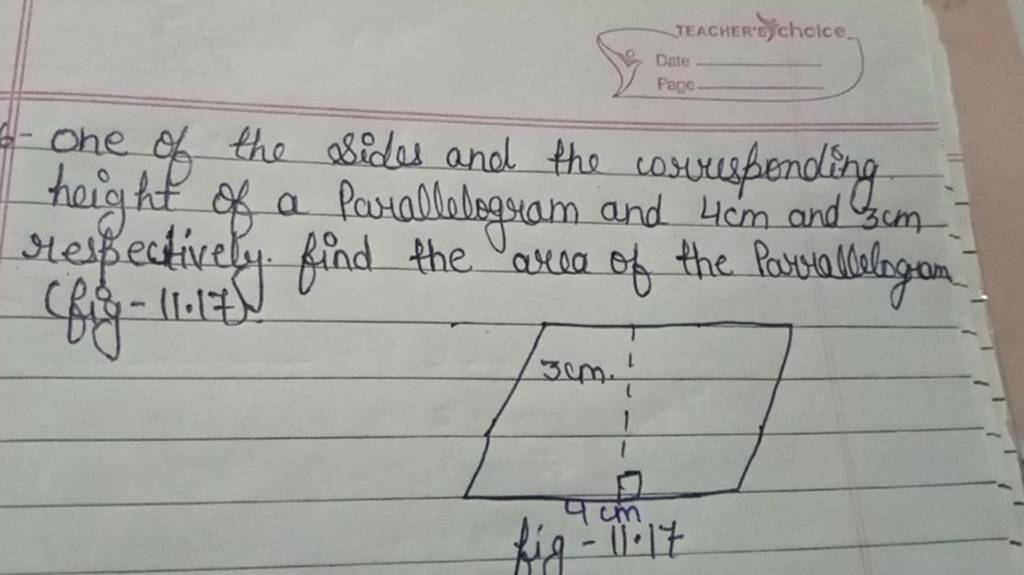 TEACHER'S choice
Date
Page
6- one of the sides and the corresponding
height of a Parallelogram and 4cm and 3cm
respectively. find the area of the Parrallelogram
(fig-11.17)
3cm.
4 cm
fig-11.17